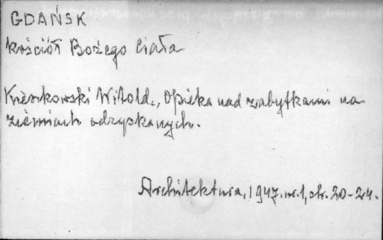 GDAŃSK
kościół Bożego Ciała
Kieszkowski Witold., Opieka nad zabytkami na
ziemiach odzyskanych.
Architektura, 1947. nr. 1, str. 20-24.